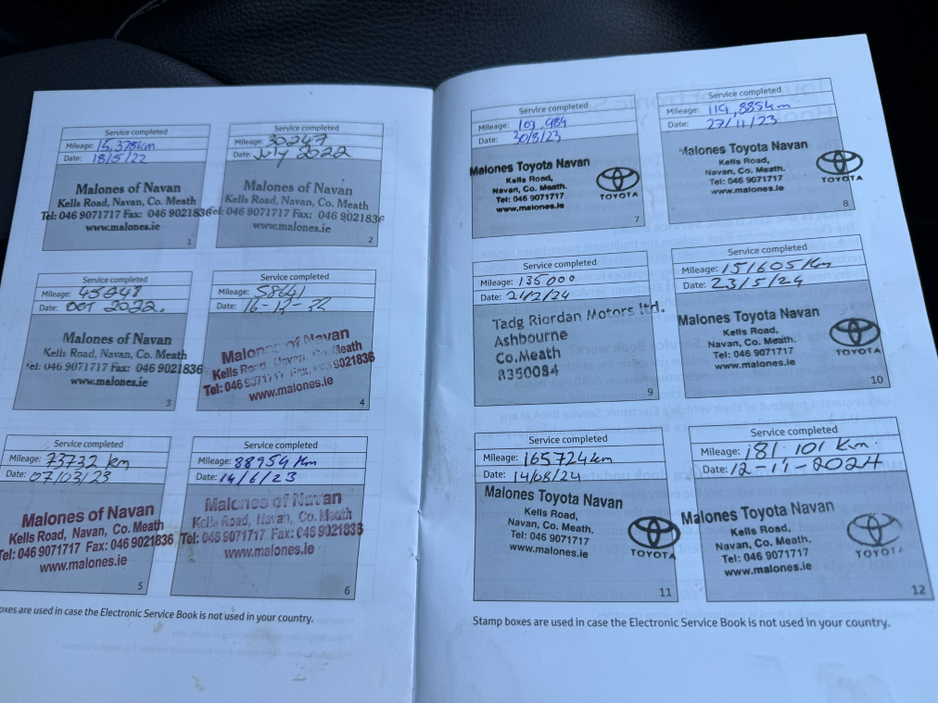 Service completed
Mileage: 15,378km
Date: 18/5/22
Malones of Navan
Kells Road, Navan, Co. Meath
Tel: 046 9071717 Fax: 046 9021836
www.malones.ie
1
Service completed
Mileage: 30247
Date: July 2022
Malones of Navan
Kells Road, Navan, Co. Meath
Tel: 046 9071717 Fax: 046 9021836
www.malones.ie
2
Service completed
Mileage: 45247
Date: Oct 2022.
Malones of Navan
Kells Road, Navan, Co. Meath
Tel: 046 9071717 Fax: 046 9021836
www.malones.ie
3
Service completed
Mileage: 58661
Date: 16-12-22
Malones of Navan
Kells Road, Navan, Co. Meath
Tel: 046 9071717 Fax: 046 9021836
www.malones.ie
4
Service completed
Mileage: 73732 km
Date: 07/03/23
Malones of Navan
Kells Road, Navan, Co. Meath
Tel: 046 9071717 Fax: 046 9021836
www.malones.ie
5
Service completed
Mileage: 88954 Km
Date: 14/6/23
Malones of Navan
Kells Road, Navan, Co. Meath
Tel: 046 9071717 Fax: 046 9021836
www.malones.ie
6
boxes are used in case the Electronic Service Book is not used in your country.
Service completed
Mileage: 103,984
Date: 30/8/23
Malones Toyota Navan
Kells Road,
Navan, Co. Meath.
Tel: 046 9071717
www.malones.ie
TOYOTA
7
Service completed
Mileage: 119,885km
Date: 27/11/23
Malones Toyota Navan
Kells Road,
Navan, Co. Meath.
Tel: 046 9071717
www.malones.ie
TOYOTA
8
Service completed
Mileage: 135000
Date: 21/2/24
Tadg Riordan Motors ltd.
Ashbourne
Co.Meath
8350084
9
Service completed
Mileage: 151605 Km
Date: 23/5/24
Malones Toyota Navan
Kells Road,
Navan, Co. Meath.
Tel: 046 9071717
www.malones.ie
TOYOTA
10
Service completed
Mileage: 165724km
Date: 14/08/24
Malones Toyota Navan
Kells Road,
Navan, Co. Meath.
Tel: 046 9071717
www.malones.ie
TOYOTA
11
Service completed
Mileage: 181.101 Km.
Date: 12-11-2024
Malones Toyota Navan
Kells Road,
Navan, Co. Meath.
Tel: 046 9071717
www.malones.ie
TOYOTA
12
Stamp boxes are used in case the Electronic Service Book is not used in your country.